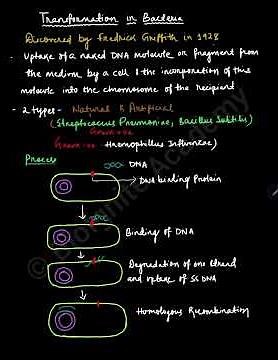 Transformation in Bacteria
Discovered by Fredrick Griffith in 1928
- Uptake of a naked DNA molecule or fragment from
the medium by a cell & the incorporation of this
molecule into the chromosome of the recipient
- 2 types - Natural & Artificial
(Streptococcus Pneumoniae, Bacillus Subtilis)
Gram +ve
Gram -ve Haemophilus Influenzae)
Process
DNA
DNA binding Protein
Binding of DNA
Degradation of one strand
and uptake of ss DNA
Homologous Recombination